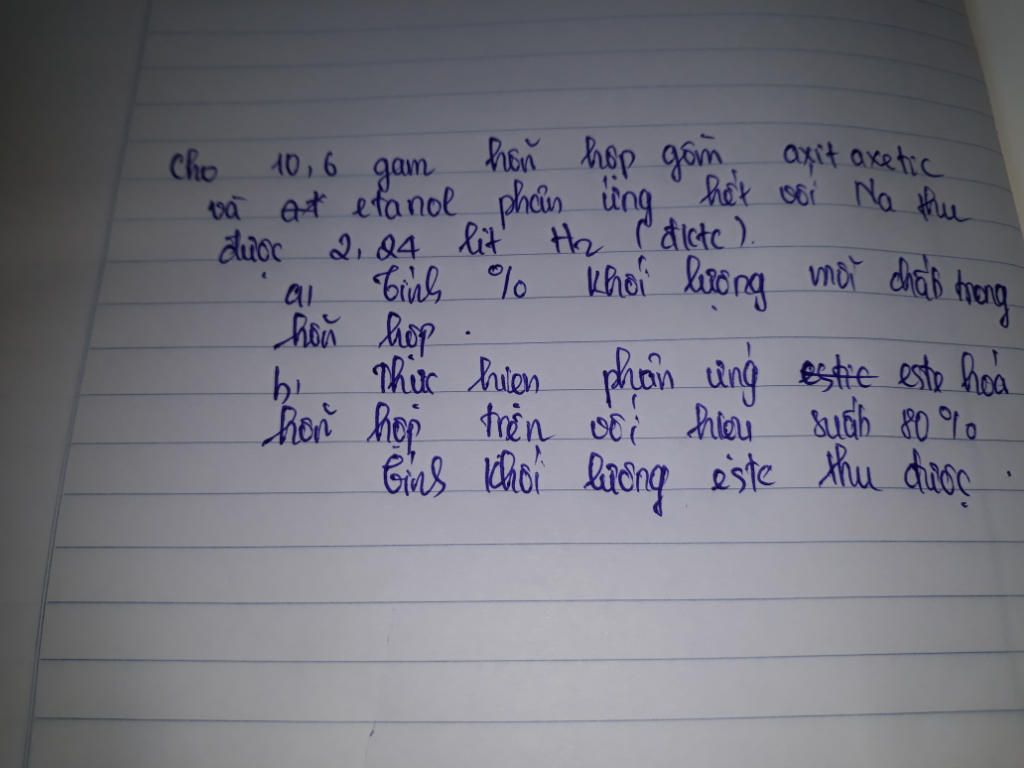 Cho 10,6 gam hỗn hợp gồm axit axetic
và etanol phản ứng hết với Na thu
được 2,24 lít H2 (đktc).
a, Tính % khối lượng mỗi chất trong
hỗn hợp.
b, Thực hiện phản ứng estic este hoá
hỗn hợp trên với hiệu suất 80%
Tính khối lượng este thu được.